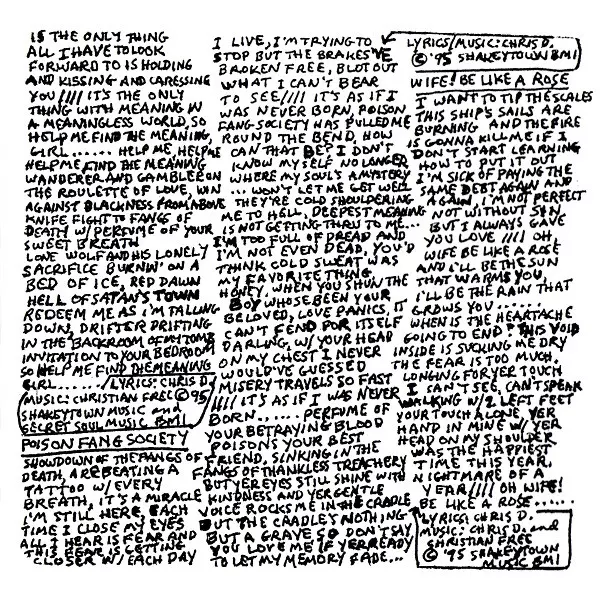 IS THE ONLY THING
ALL I HAVE TO LOOK
FORWARD TO IS HOLDING
AND KISSING AND CARESSING
YOU //// IT'S THE ONLY
THING WITH MEANING IN
A MEANINGLESS WORLD, SO
HELP ME FIND THE MEANING,
GIRL...... HELP ME, HELP ME
HELP ME FIND THE MEANING
WANDERER AND GAMBLER ON
THE ROULETTE OF LOVE, WIN
AGAINST BLACKNESS FROM ABOVE
KNIFE FIGHT TO FANGS OF
DEATH W/ PERFUME OF YOUR
SWEET BREATH
LONE WOLF AND HIS LONELY
SACRIFICE BURNIN' ON A
BED OF ICE, RED DAWN
HELL OF SATAN'S TOWN
REDEEM ME AS I'M FALLING
DOWN, DRIFTER DRIFTING
IN THE BACKROOM OF MY TOMB
INVITATION TO YOUR BEDROOM
SO HELP ME FIND THE MEANING
GIRL....../LYRICS: CHRIS D.
MUSIC: CHRISTIAN FREE © 95
SHAKEYTOWN MUSIC and
SECRET SOUL MUSIC BMI
POISON FANG SOCIETY
SHOWDOWN OF THE FANGS OF
DEATH, ARE BEATING A
TATTOO W/ EVERY
BREATH, IT'S A MIRACLE
I'M STILL HERE, EACH
TIME I CLOSE MY EYES
ALL I HEAR IS FEAR AND
THIS FEAR IS GETTING
CLOSER W/ EACH DAY
I LIVE, I'M TRYING TO
STOP BUT THE BRAKES'VE
BROKEN FREE, BLOT OUT
WHAT I CAN'T BEAR
TO SEE //// IT'S AS IF I
WAS NEVER BORN, POISON
FANG SOCIETY HAS PULLED ME
ROUND THE BEND, HOW
CAN THAT BE? I DON'T
KNOW MYSELF NO LONGER
WHERE MY SOUL'S A MYSTERY
... WON'T LET ME GET WELL
THEY'RE COLD SHOULDERING
ME TO HELL, DEEPEST MEANING
IS NOT GETTING THRU TO ME...
I'M TOO FULL OF DREAD AND
I'M NOT EVEN DEAD, YOU'D
THINK COLD SWEAT WAS
MY FAVORITE THING
HONEY, WHEN YOU SHUN THE
BOY WHOSE BEEN YOUR
BELOVED, LOVE PANICS, IT
CAN'T FEND FOR ITSELF
DARLING, W/ YOUR HEAD
ON MY CHEST I NEVER
WOULD'VE GUESSED
MISERY TRAVELS SO FAST
//// IT'S AS IF I WAS NEVER
BORN...... PERFUME OF
YOUR BETRAYING BLOOD
POISONS YOUR BEST
FRIEND, SINKING IN THE
FANGS OF THANKLESS TREACHERY
BUT YER EYES STILL SHINE WITH
KINDNESS AND YER GENTLE
VOICE ROCKS ME IN THE CRADLE
BUT THE CRADLE'S NOTHING
BUT A GRAVE SO DON'T SAY
YOU LOVE ME IF YER READY
TO LET MY MEMORY FADE...
LYRICS/MUSIC: CHRIS D.
© '95 SHAKEYTOWN BMI
WIFE! BE LIKE A ROSE
I WANT TO TIP THE SCALES
THIS SHIP'S SAILS ARE
BURNING AND THE FIRE
IS GONNA KILL ME IF I
DON'T START LEARNING
HOW TO PUT IT OUT
I'M SICK OF PAYING THE
SAME DEBT AGAIN AND
AGAIN, I'M NOT PERFECT
NOT WITHOUT SIN
BUT I ALWAYS GAVE
YOU LOVE //// OH,
WIFE BE LIKE A ROSE
AND I'LL BE THE SUN
THAT WARMS YOU,
I'LL BE THE RAIN THAT
GROWS YOU......
WHEN IS THE HEARTACHE
GOING TO END? THIS VOID
INSIDE IS SUCKING ME DRY
THE FEAR IS TOO MUCH,
LONGING FOR YER TOUCH
I CAN'T SEE, CAN'T SPEAK
WALKING W/ 2 LEFT FEET
YOUR TOUCH ALONE, YER
HAND IN MINE W/ YER
HEAD ON MY SHOULDER
WAS THE HAPPIEST
TIME THIS YEAR,
NIGHTMARE OF A
YEAR //// OH WIFE!
BE LIKE A ROSE......
LYRICS: CHRIS D.
MUSIC: CHRIS D. and
CHRISTIAN FREE
© '95 SHAKEYTOWN
MUSIC BMI